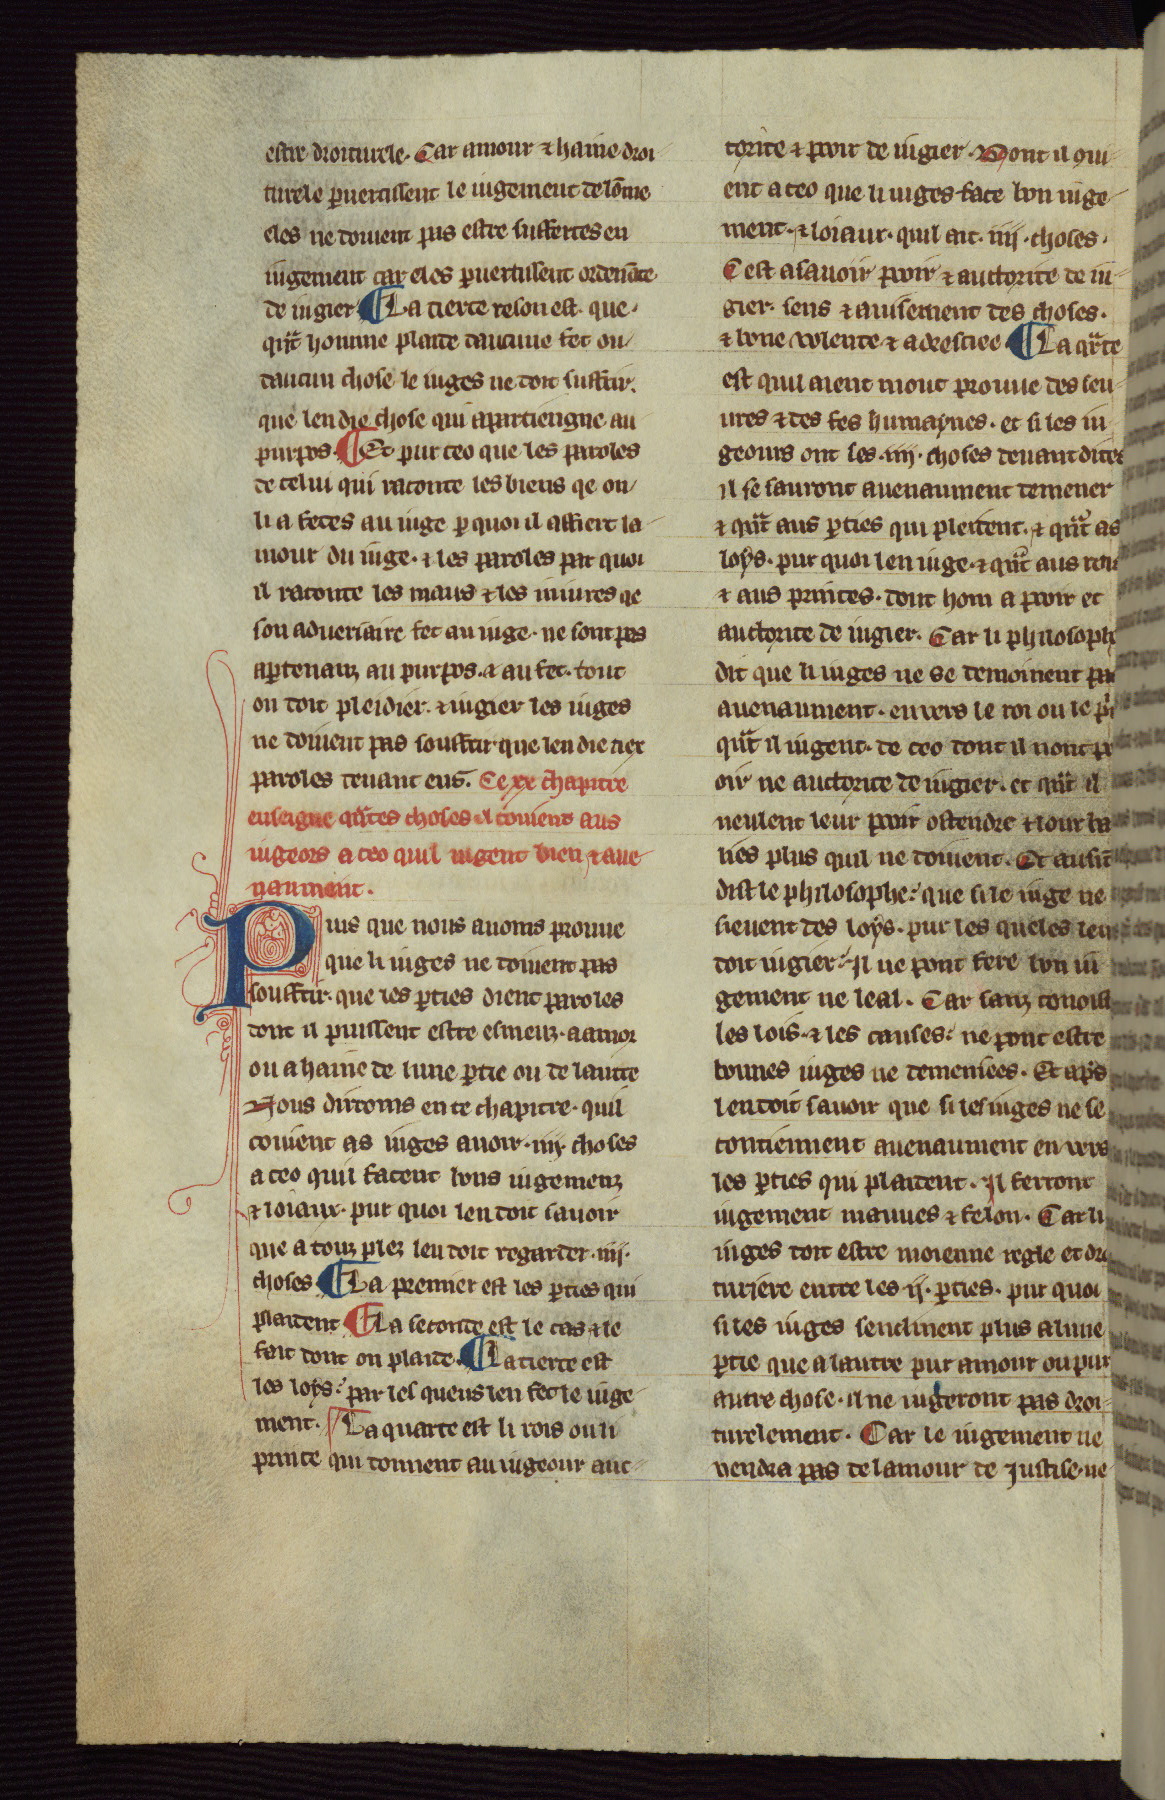 estre droiturele. Car amour & haine droi
turele ꝑuertissent le iugement de lōme
eles ne doiuent pas estre suffertes en
iugement car eles ꝑuertissent ordenāce
de iugier ¶ La tierce reson est. que
qn̄t homme plaide daucune fet ou
daucun chose le iuges ne doit suffrir.
que len die chose qui apartiengne au
purpos. ¶ Et pur ceo que les paroles
de celui qui raconte les biens qe on
li a fetes au iuge ꝑ quoi il affiert la
mour du iuge. & les paroles par quoi
il raconte les maus & les iniures qe
son aduersaire fet au iuge. ne sont pas
aꝑtenanz au purpos. & au fet. dont
on doit pleidier. & iugier les iuges
ne doiuent pas souffrir que len die tiex
paroles deuant eus. Ce xx chapitre
enseigne qn̄tes choses il couient aus
iugeors a ceo quil iugent bien & aue
naument.
Puis que nous auoms prouue
que li iuges ne doiuent pas
souffrir. que les ꝑties dient paroles
dont il puissent estre esmeuz. a amor
ou a haine de lune ꝑtie ou de lautre
Nous diroms en ce chapitre. quil
couient as iuges auoir. iiij. choses
a ceo quil facent bons iugemenz
& loiaux. pur quoi len doit sauoir
que a touz plez len doit regarder. iiij.
choses ¶ La premier est les ꝑties qui
plaident ¶ La seconde est le cas & le
fait dont on plaide. ¶ La tierce est
les loys. par les queus len fet le iuge
ment. ¶ La quarte est li rois ou li
prince qui donnent au iugeour auc
torite & poir de iugier. Dont il 9ui
ent a ceo que li iuges face bon iuge
ment. & loiaux. quil ait. iiij. choses.
Cest asauoir poir & auctorite de iu
gier. sens & auisement des choses.
& bone volente & adresciee ¶ La qr̄te
est quil aient mout prouue des seu
ures & des fes humaynes. et si les iu
geours ont les. iiij. choses deuant dites
il se sauront auenaument demener
& qn̄t aus ꝑties qui pleident. & qn̄t as
loys. pur quoi len iuge. & qn̄t aus
& aus princes. dont hom a poir et
auctorite de iugier. Car li philosoph
dit que li iuges ne se demoinent pas
auenaument. enuers le roi ou le
qn̄t il iugent. de ceo dont il nont
oir ne auctorite de iugier. et qn̄t il
veulent leur poir ostendre & lour
lies plus quil ne doiuent. Et ausint
dist le philosophe. que si le iuge ne
sieuent des loys. pur les queles len
doit iugier. Il ne pont fere bon iu
gement ne leal. Car sanz
les lois. & les causes. ne pont estre
bonnes iuges ne demenees. Et apˢ
len doit sauoir que si les iuges ne se
contiennent auenaument en vers
les ꝑties qui plaident. Il ferront
iugement mauues & felon. Car li
iuges doit estre moienne regle et dr
turiere entre les ij. ꝑties. pur quoi
si les iuges senclinent plus a lune
ꝑtie que a lautre pur amour ou pur
autre chose. il ne iugeront pas droi
turelement. Car le iugement ne
vendra pas de lamour de Justise. ne